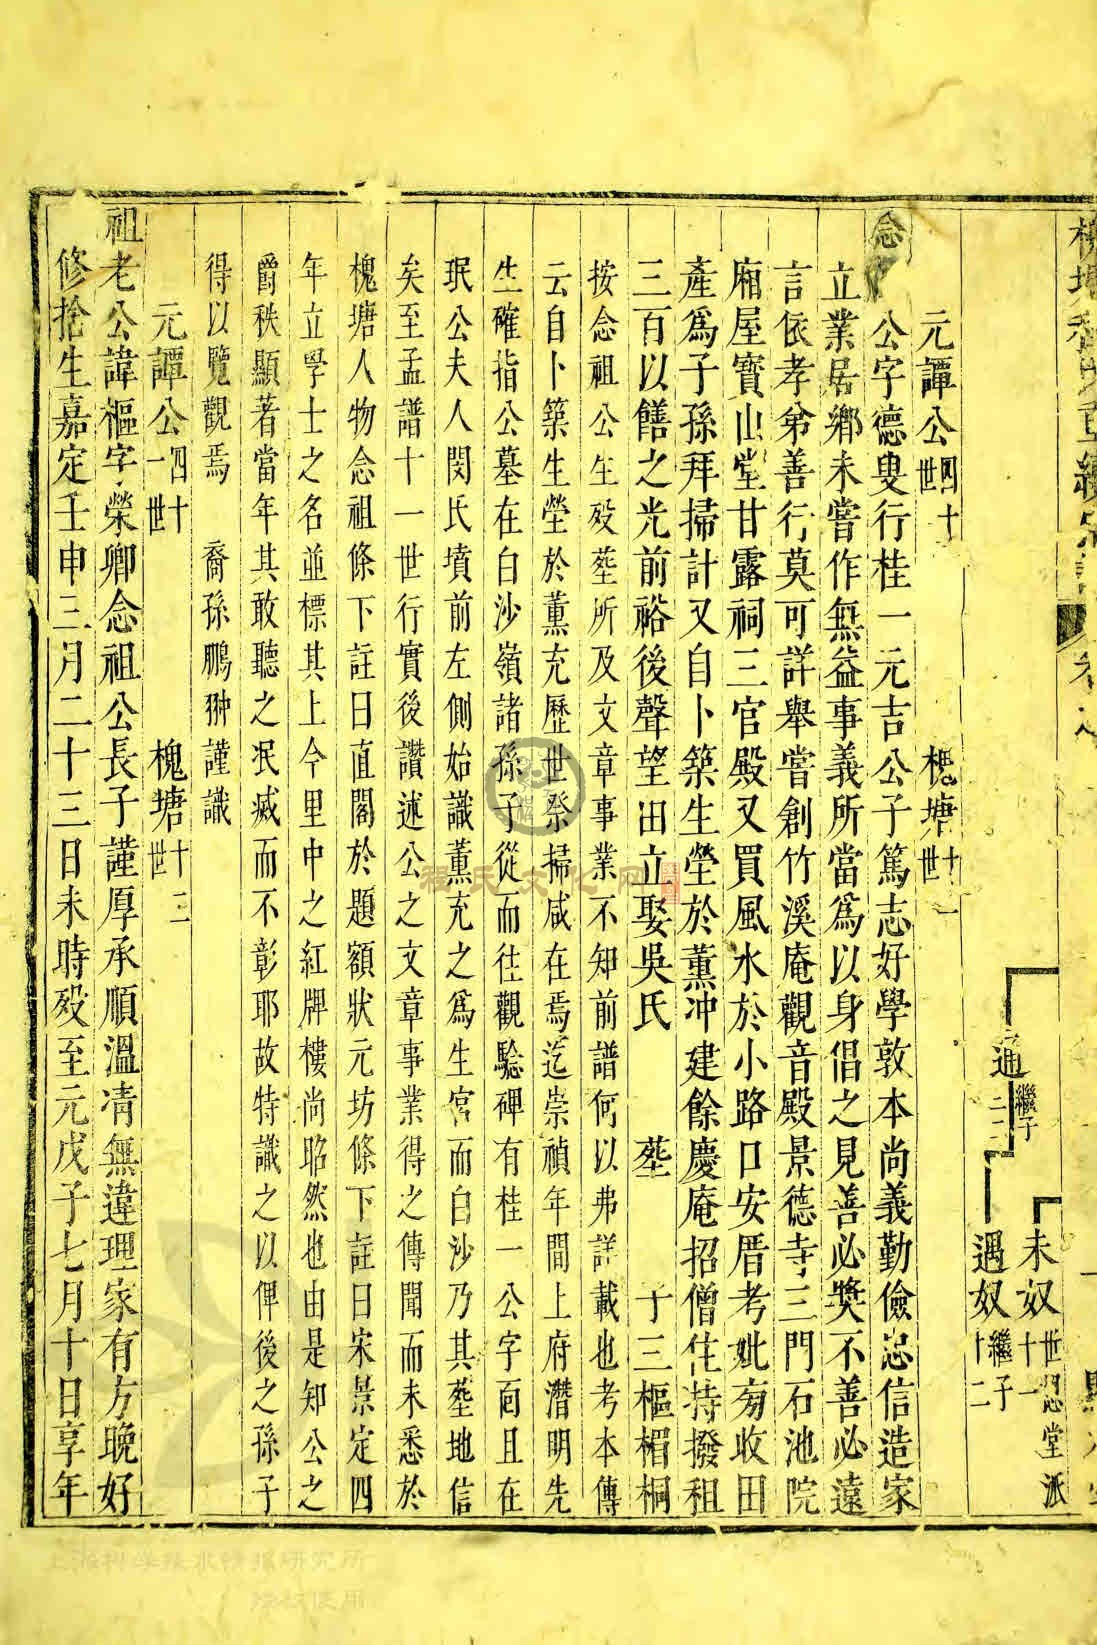 未奴 十一世忍堂派
通 繼子
遇奴 繼子十二
元譚公四十世 槐塘十一世
念
公字德叟行桂一元吉公子篤志好學敦本尚義勤儉忠信造家
立業居鄉未嘗作無益事義所當爲以身倡之見善必獎不善必遠
言依孝弟善行莫可詳舉嘗創竹溪庵觀音殿景德寺三門石池院
廂屋寶山堂甘露祠三官殿又買風水於小路口安厝考妣旁收田
產爲子孫拜掃計又自卜築生塋於薰冲建餘慶庵招僧住持撥租
三百以饍之光前裕後聲望田立娶吳氏 塟 子三樞楣桐
按念祖公生歿塟所及文章事業不知前譜何以弗詳載也考本傳
云自卜築生塋於薰充歷世祭掃咸在焉迄崇禎年間上府潛明先
生確指公墓在白沙嶺諸孫子從而往觀驗碑有桂一公字面且在
珉公夫人閔氏墳前左側始識薰充之爲生宮而白沙乃其塟地信
矣至孟譜十一世行實後讚述公之文章事業得之傳聞而未悉於
槐塘人物念祖條下註曰直閣於題額狀元坊條下註曰宋景定四
年立學士之名並標其上今里中之紅牌樓尚昭然也由是知公之
爵秩顯著當年其敢聽之泯滅而不彰耶故特識之以俾後之孫子
得以覽觀焉 裔孫鵬翀謹識
元譚公四十一世 槐塘十二世
祖老公諱樞字榮卿念祖公長子謹厚承順溫凊無違理家有方晚好
修捨生嘉定壬申三月二十三日未時歿至元戊子七月十日享年
程氏文化网
上海科学技术情报研究所
授权使用